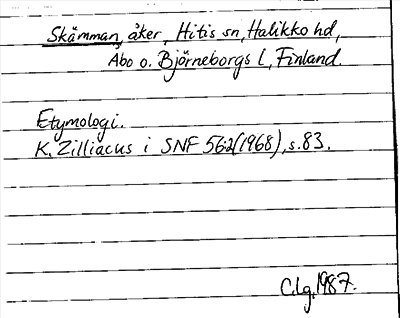 Skämman, åker, Hitis sn, Halikko hd,
Åbo o. Björneborgs l, Finland.
Etymologi.
K. Zilliacus i SNF 56:2(1968), s. 83.
C.lg. 1987.